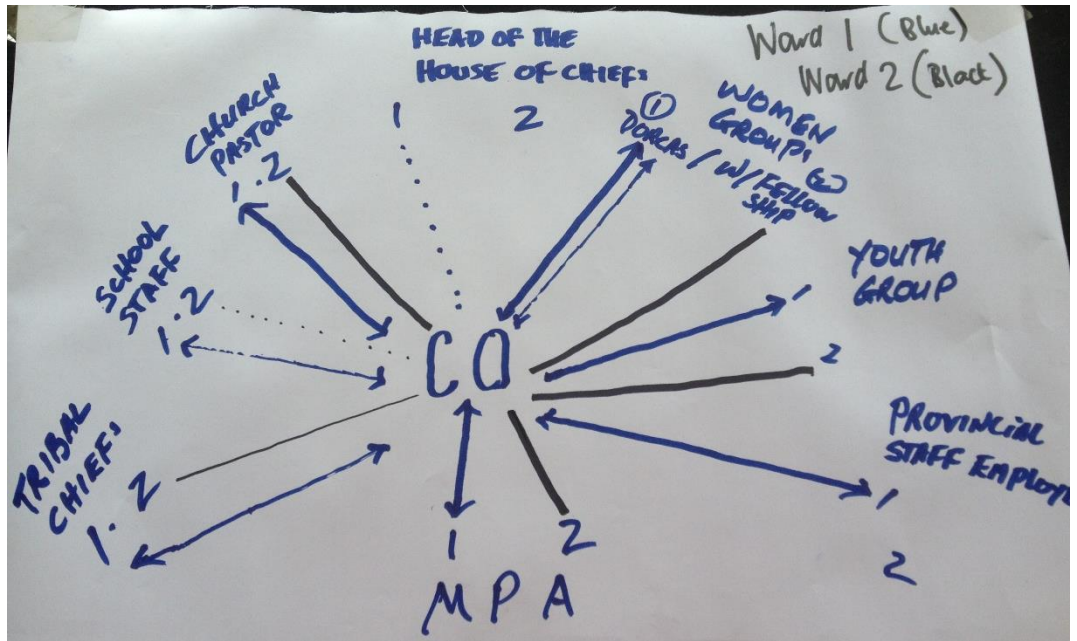 Ward 1 (Blue)
Ward 2 (Black)
HEAD OF THE
HOUSE OF CHIEFS
1 2
CHURCH
PASTOR
1.2
① WOMEN
GROUPS ②
DORCAS / W/FELLOW
SHIP
SCHOOL
STAFF
1.2
YOUTH
GROUP
1
2
CO
TRIBAL
CHIEFS
1.2
PROVINCIAL
STAFF EMPLOY
1
2
1 2
MPA